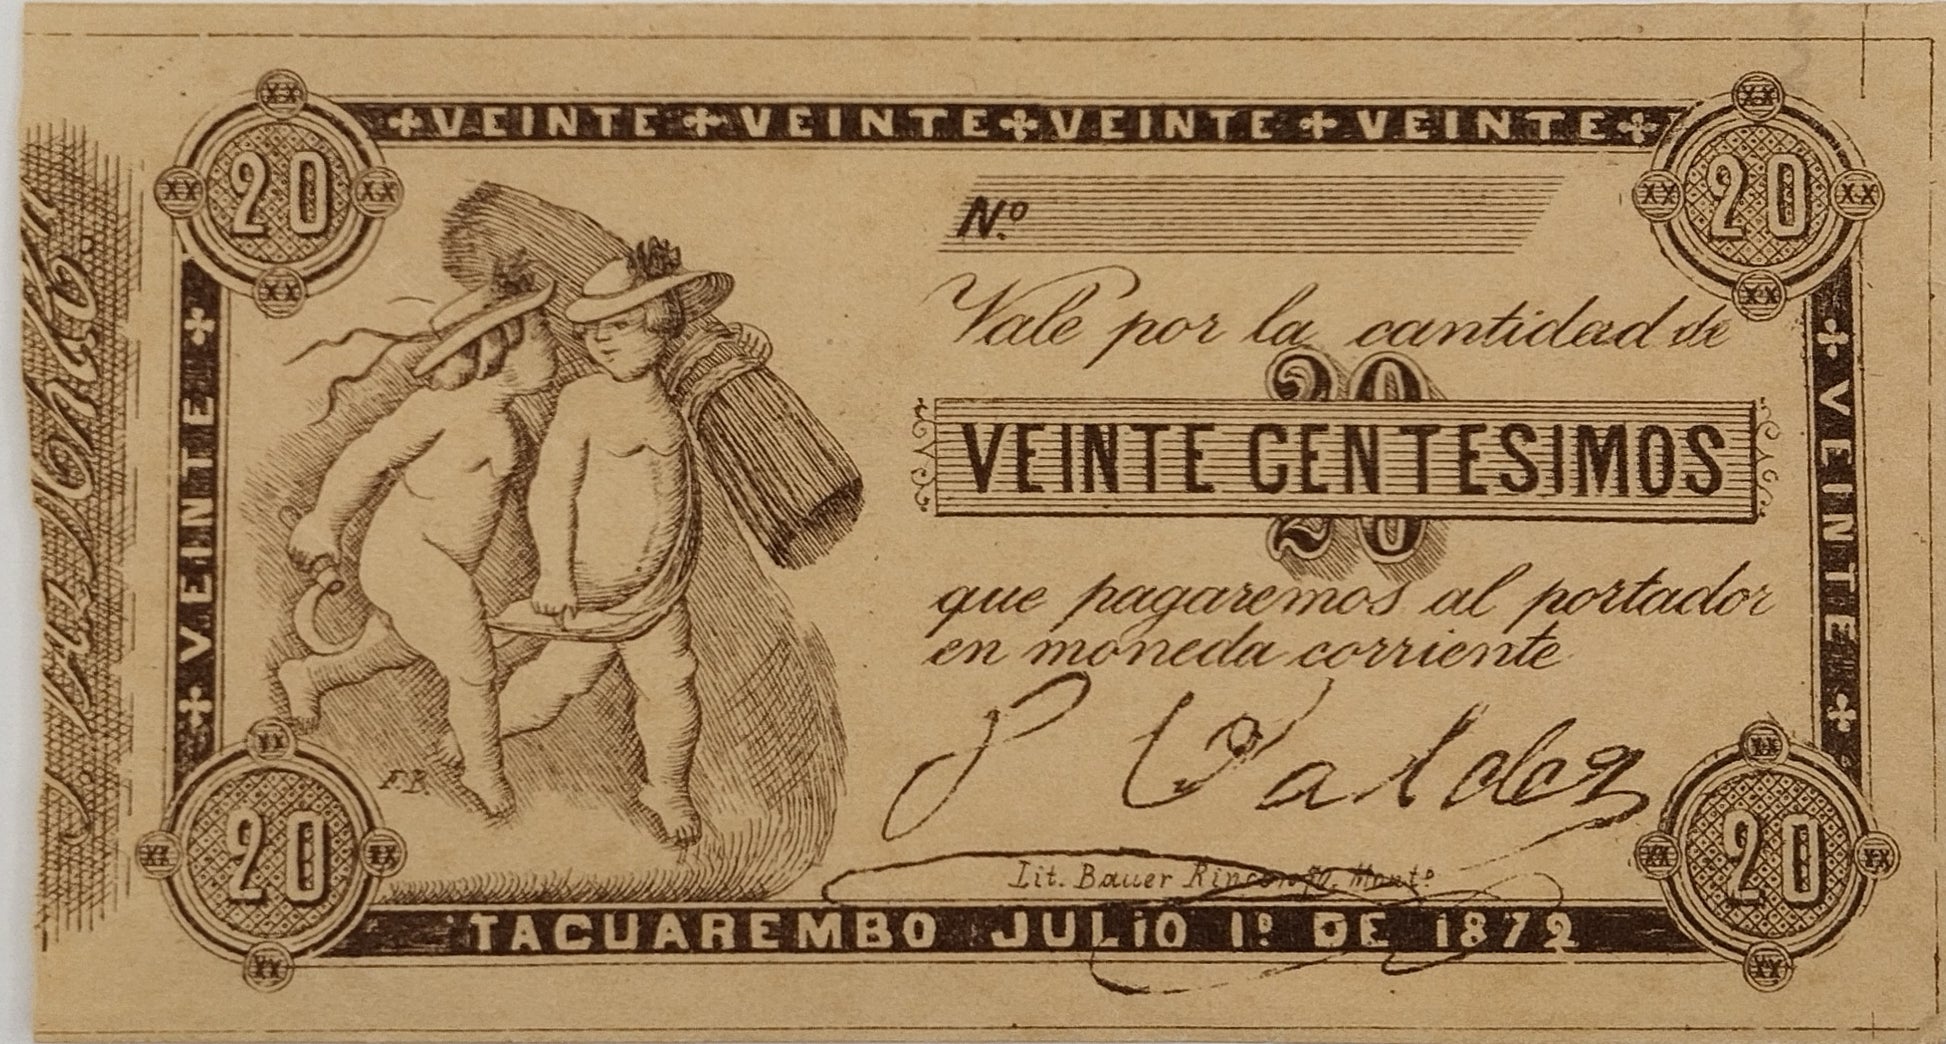 +VEINTE+VEINTE+VEINTE+VEINTE+
XX
XX 20 XX
XX
XX
XX 20 XX
XX
Nº
Vale por la cantidad de
20
VEINTE CENTESIMOS
que pagaremos al portador
en moneda corriente
+VEINTE+
+VEINTE+VEINTE+
P Valdez
F.B.
Lit. Bauer Rincon 70. Montº
XX
XX 20 XX
XX
XX
XX 20 XX
XX
TACUAREMBO JULIO 1º DE 1872